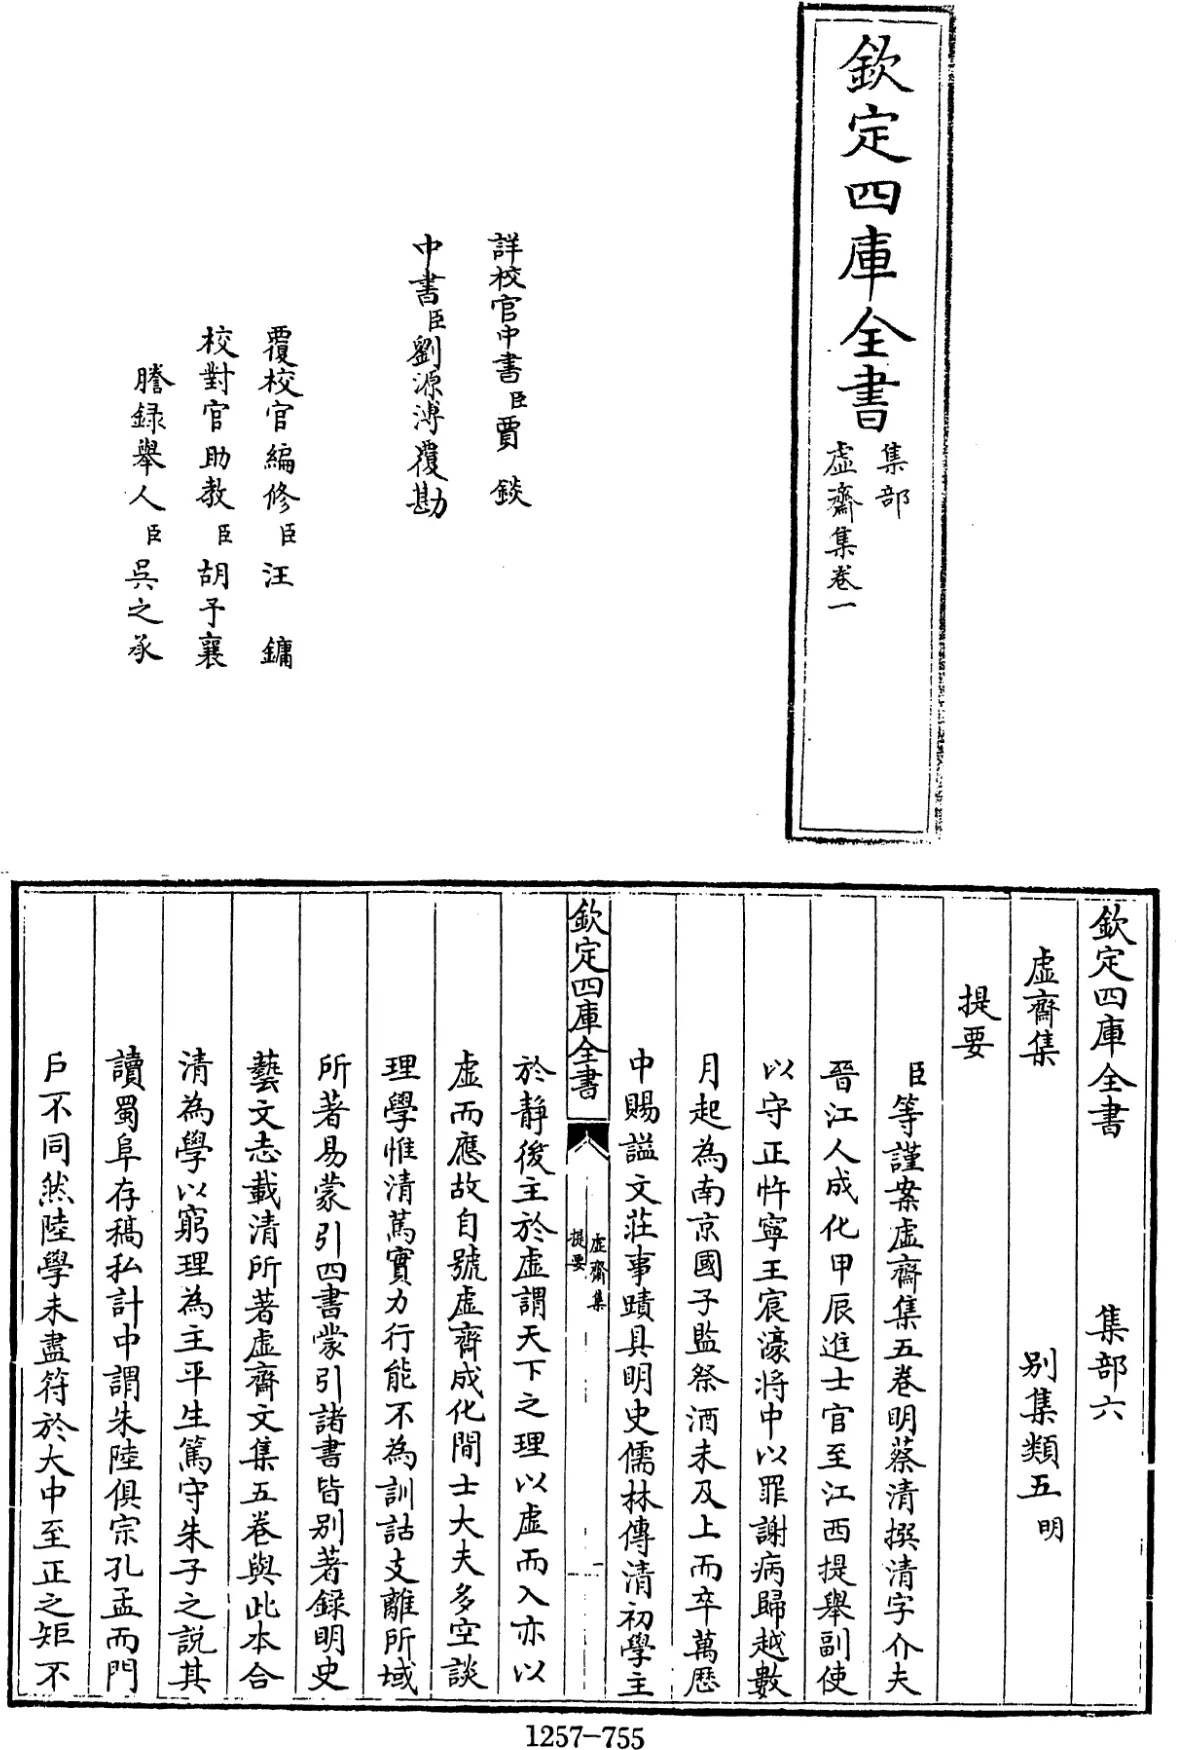 欽定四庫全書
集部
虛齋集卷一
詳校官中書臣賈錟
中書臣劉源溥覆勘
覆校官編修臣汪鏞
校對官助教臣胡予襄
謄録舉人臣吳之承
欽定四庫全書 集部六
虛齋集 别集類五明
提要
臣等謹案虛齋集五卷明蔡清撰清字介夫
晉江人成化甲辰進士官至江西提舉副使
以守正忤寧王宸濠將中以罪謝病歸越數
月起為南京國子監祭酒未及上而卒萬歷
中賜謚文莊事蹟具明史儒林傳清初學主
欽定四庫全書
虛齋集
提要
一
於静後主於虛謂天下之理以虛而入亦以
虛而應故自號虛齋成化間士大夫多空談
理學惟清篤實力行能不為訓詁支離所域
所著易蒙引四書蒙引諸書皆别著録明史
藝文志載清所著虛齋文集五卷與此本合
清為學以窮理為主平生篤守朱子之說其
讀蜀阜存稿私計中謂朱陸俱宗孔孟而門
戶不同然陸學未盡符於大中至正之矩不
1257-755